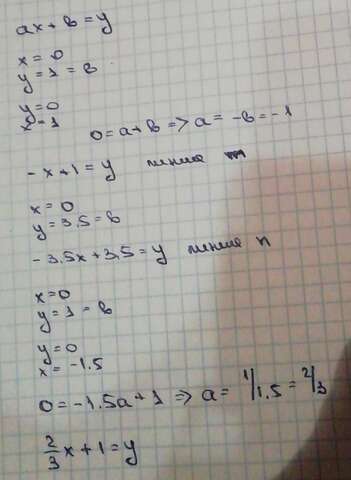 ax + b = y
x = 0
y = 1 = b
y = 0
x = 1
0 = a + b => a = -b = -1
-x + 1 = y линия m
x = 0
y = 3.5 = b
-3.5x + 3.5 = y линия n
x = 0
y = 1 = b
y = 0
x = -1.5
0 = -1.5a + 1 => a = 1/1.5 = 2/3
2/3 x + 1 = y